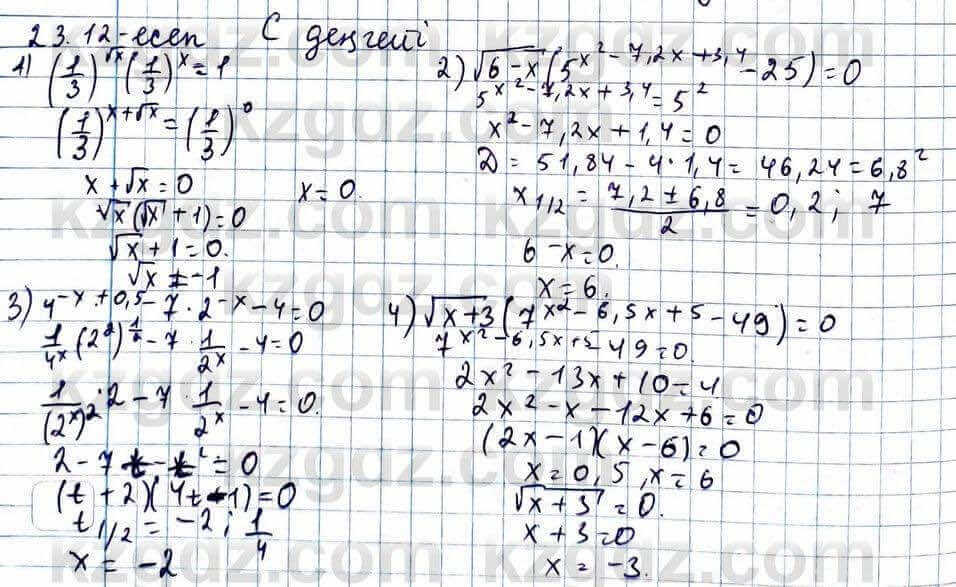 23.12-есеп С деңгейі
1) (1/3)^√x (1/3)^x = 1
(1/3)^(x+√x) = (1/3)^0
x + √x = 0 x = 0.
√x(√x + 1) = 0
√x + 1 = 0.
√x ≠ -1
2) √(6-x) (5^(x²-7,2x+3,4) - 25) = 0
5^(x²-7,2x+3,4) = 5²
x² - 7,2x + 1,4 = 0
D = 51,84 - 4·1,4 = 46,24 = 6,8²
x1/2 = (7,2 ± 6,8)/2 = 0,2; 7
6 - x = 0.
x = 6.
3) 4^(-x+0,5) - 7·2^(-x) - 4 = 0
1/4^x (2²)^(1/2) - 7·1/2^x - 4 = 0
1/(2^x)²·2 - 7·1/2^x - 4 = 0.
2 - 7t - t² = 0
(t + 2)(4t - 1) = 0
t1/2 = -2; 1/4
x = -2
4) √(x+3) (7^(x²-6,5x+5) - 49) = 0
7^(x²-6,5x+5) - 49 = 0.
2x² - 13x + 10 = 4
2x² - x - 12x + 6 = 0
(2x - 1)(x - 6) = 0
x = 0,5, x = 6
√(x+3) = 0.
x + 3 = 0
x = -3.
kzgdz.com